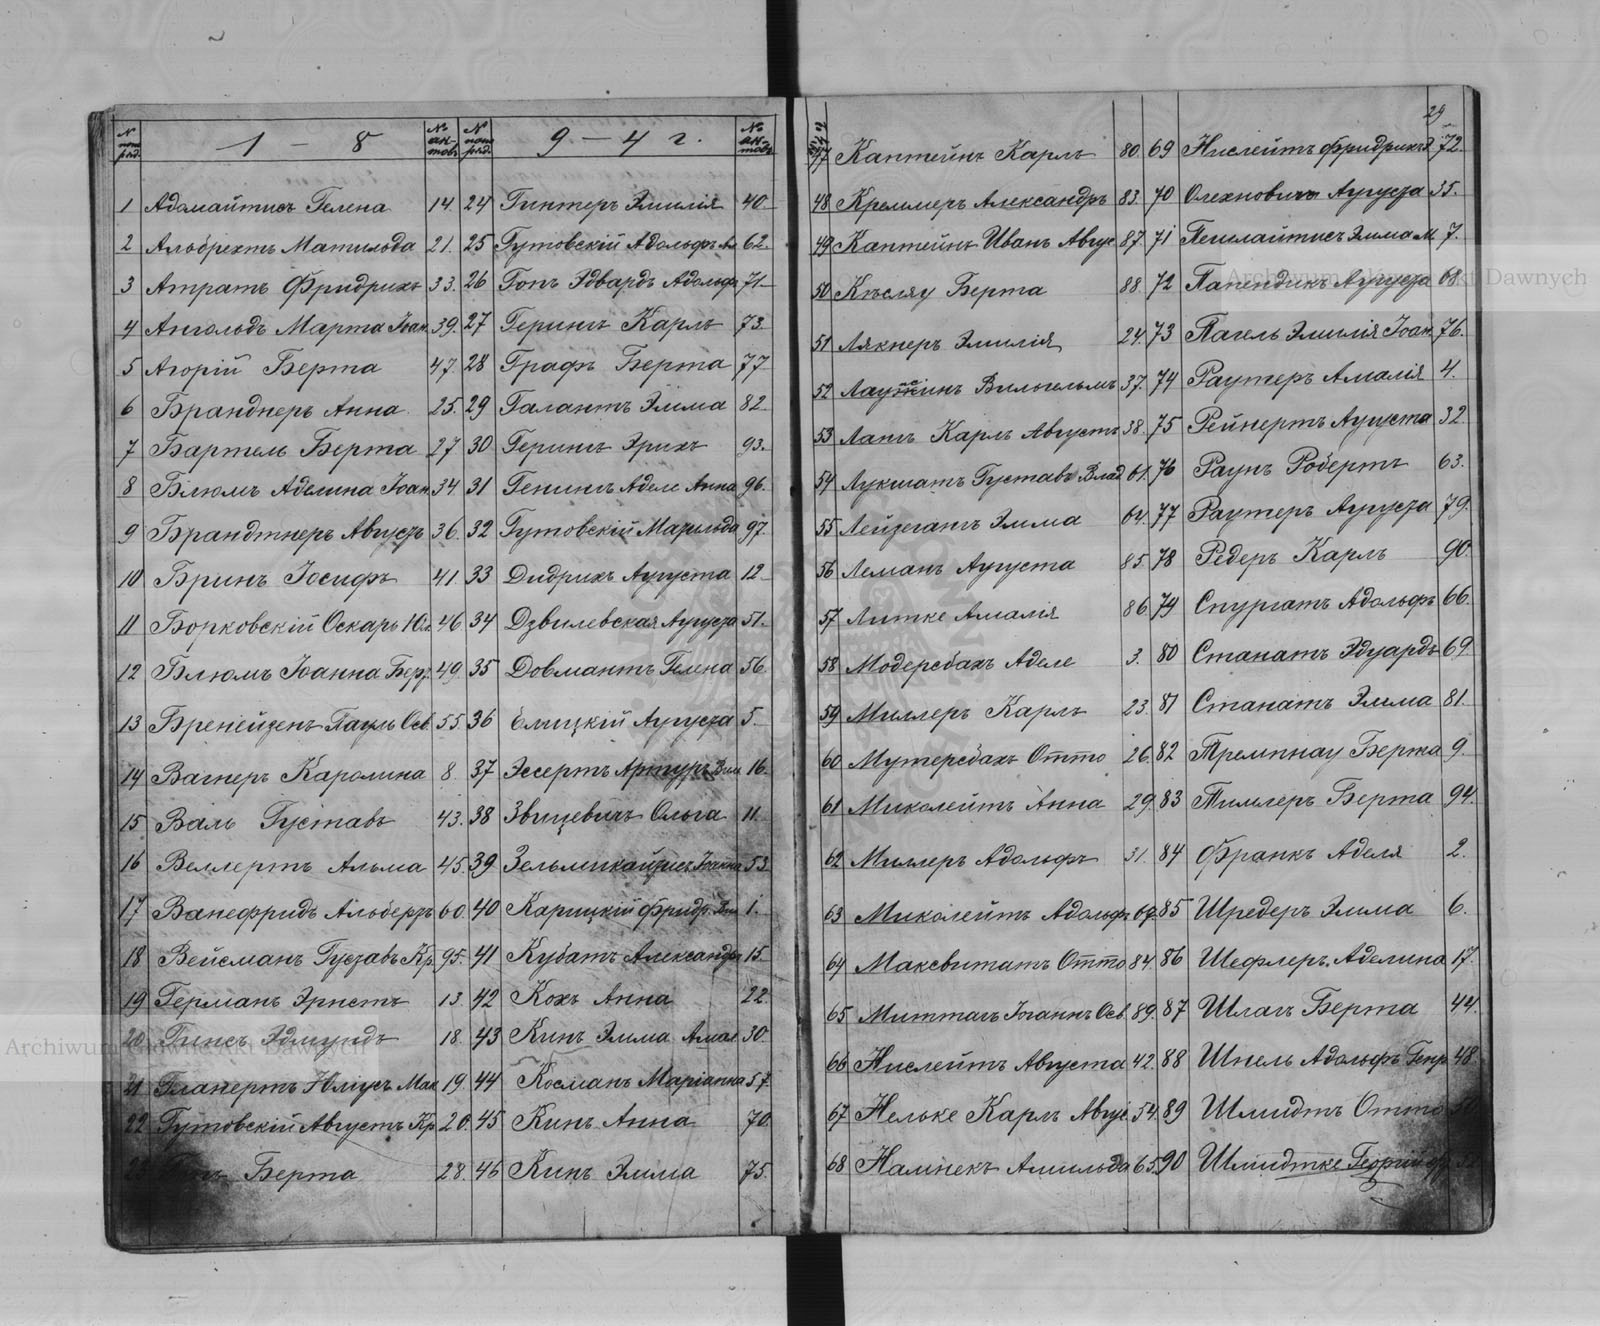 29
№ пор. ряд. 1 — 8 № актовъ № пор. ряд. 9 — 4 г. № актовъ
1 Адомайтисъ Гелена 14.
2 Альбрехтъ Матильда 21.
3 Атратъ Фридрихъ 33.
4 Ангольдъ Марта Іоан. 39.
5 Агорій Берта 47.
6 Бранднеръ Анна 25.
7 Бартель Берта 27
8 Блюмъ Аделина Іоан. 34
9 Брандтнеръ Августъ 36.
10 Бринъ Іосифъ 41
11 Борковскій Оскаръ Юл. 46
12 Блюмъ Іоанна Берт. 49.
13 Бренейзенъ Пауль Осв. 55.
14 Вагнеръ Каролина 8.
15 Валь Густавъ 43.
16 Веллертъ Альма 45.
17 Ванефридъ Альбертъ 60.
18 Вейсманъ Густавъ Кр. 95.
19 Германъ Эрнстъ 13.
20 Гинсъ Эдмундъ 18.
21 Гланертъ Юліусъ Мак 19.
22 Гутовскій Августъ Кр 20.
Берта 28.
24 Гинтеръ Эмилія 40.
25 Гутовскій Адольфъ Ал 62.
26 Гопъ Эдвардъ Адольфъ 71
27 Герингъ Карлъ 73.
28 Графъ Берта 77
29 Галантъ Эмма 82.
30 Герингъ Эрихъ 93.
31 Генингъ Аделе Анна 96.
32 Гутовскій Матильда 97.
33 Дидрихъ Аугуста 12
34 Дзвилевская Аугуста 51.
35 Довмантъ Гелена 56.
36 Елицкій Аугуста 5.
37 Эссертъ Артуръ Вил 16.
38 Звицевичъ Ольга 11.
39 Зельмикайтисъ Іоанна 53
40 Карицкій Фридр. Вил 1.
41 Кубатъ Александръ 15.
42 Кохъ Анна 22.
43 Кинъ Эмма Амал 30.
44 Косманъ Маріанна 57.
45 Кинъ Анна 70.
46 Кинъ Эмма 75.
47 Каптейнъ Карлъ 80.
48 Креммеръ Александръ 83.
49 Каптейнъ Иванъ Авгус 87.
50 Кѣсляу Берта 88.
51 Лякнеръ Эмилія 24.
52 Вильгельмъ 37.
53 Лангъ Карлъ Августъ 38.
54 Лукшатъ Густавъ Влад 61.
55 Лейзегангъ Эмма 64.
56 Леманъ Аугуста 85.
57 Литке Амалія 86.
58 Модерсбахъ Аделе 3.
59 Миллеръ Карлъ 23.
60 Мутерсбахъ Отто 26.
61 Миколейтъ Анна 29.
62 Миллеръ Адольфъ 31.
63 Миколейтъ Адольфъ 67.
64 Максвитатъ Отто 84.
65 Миттагъ Іоганнъ Осв. 89.
66 Нислейтъ Августа 42.
67 Нельке Карлъ Авгус 54.
68 Налинекъ Амильда 65.
69 Нислейтъ Фридрихъ 72.
70 Олехновичъ Аугуста 35.
71 Пешлайтисъ Эмма М 7.
72 Папендикъ Аугуста 68.
73 Пагель Эмилія Іоан. 76.
74 Раутеръ Амалія 4.
75 Рейнертъ Аугуста 32.
76 Раунъ Робертъ 63.
77 Раутеръ Аугуста 79.
78 Редеръ Карлъ 90.
79 Спургатъ Адольфъ 66.
80 Станатъ Эдуардъ 69.
81 Станатъ Эмма 81.
82 Тремпнау Берта 9.
83 Тиллеръ Берта 94.
84 Франкъ Аделя 2.
85 Шредеръ Эмма 6.
86 Шефлеръ Аделина 17.
87 Шлагъ Берта 44.
88 Шнель Адольфъ Генр 48.
89 Шмидтъ Отто
90 Шмидтке Георгій
Archiwum Główne Akt Dawnych
Archiwum Główne Akt Dawnych